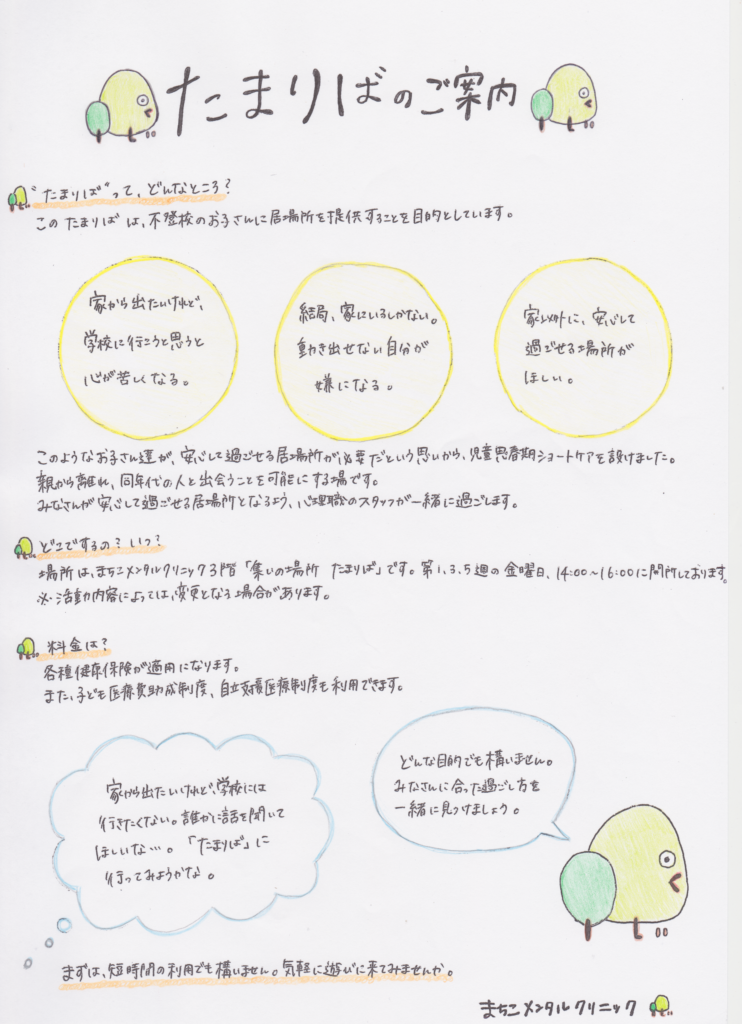 たまりばのご案内
"たまりば"って、どんなところ？
このたまりばは、不登校のお子さんに居場所を提供することを目的としています。
家から出たいけれど、
学校に行こうと思うと
心が苦しくなる。
結局、家にいるしかない。
動き出せない自分が
嫌になる。
家以外に、安心して
過ごせる場所が
ほしい。
このようなお子さん達が、安心して過ごせる居場所が必要だという思いから、児童思春期ショートケアを設けました。
親から離れ、同年代の人と出会うことを可能にする場です。
みなさんが安心して過ごせる居場所となるよう、心理職のスタッフが一緒に過ごします。
どこでするの？いつ？
場所は、まちこメンタルクリニック3階「集いの場所 たまりば」です。第1.3.5週の金曜日、14:00～16:00に開所しております。
※活動内容によっては、変更となる場合があります。
料金は？
各種健康保険が適用になります。
また、子ども医療費助成制度、自立支援医療制度も利用できます。
家から出たいけれど、学校には
行きたくない。誰かに話を聞いて
ほしいな…。「たまりば」に
行ってみようかな。
どんな目的でも構いません。
みなさんに合った過ごし方を
一緒に見つけましょう。
まずは、短時間の利用でも構いません。気軽に遊びに来てみませんか。
まちこメンタルクリニック